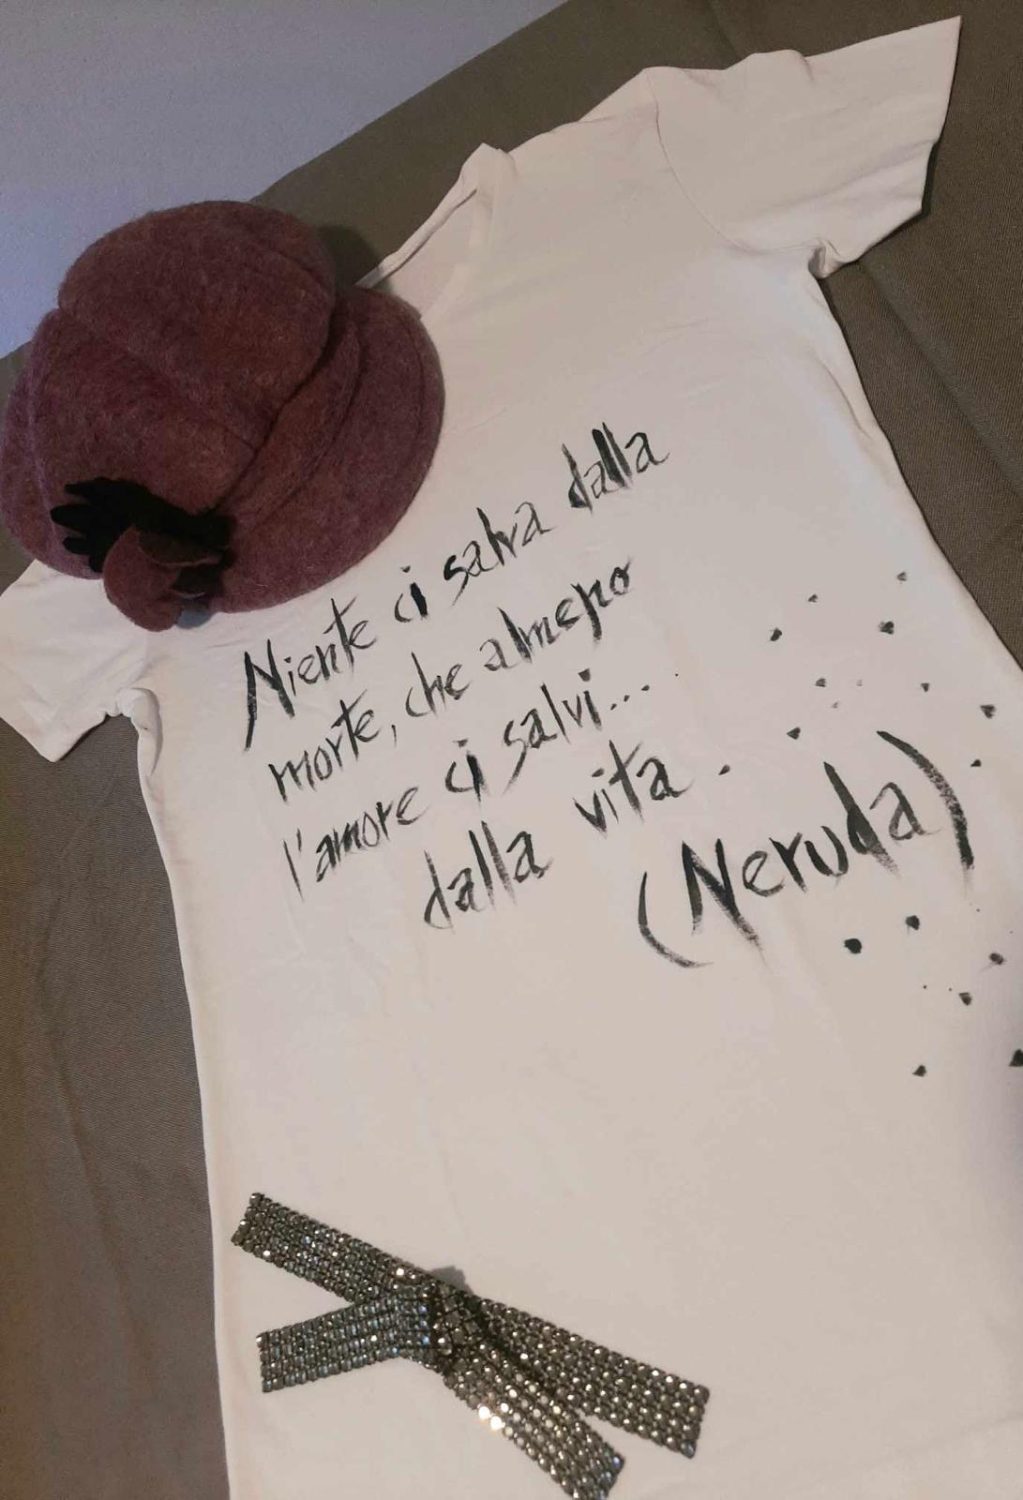 Niente ci salva dalla
morte, che almeno
l'amore ci salvi...
dalla vita.
(Neruda)